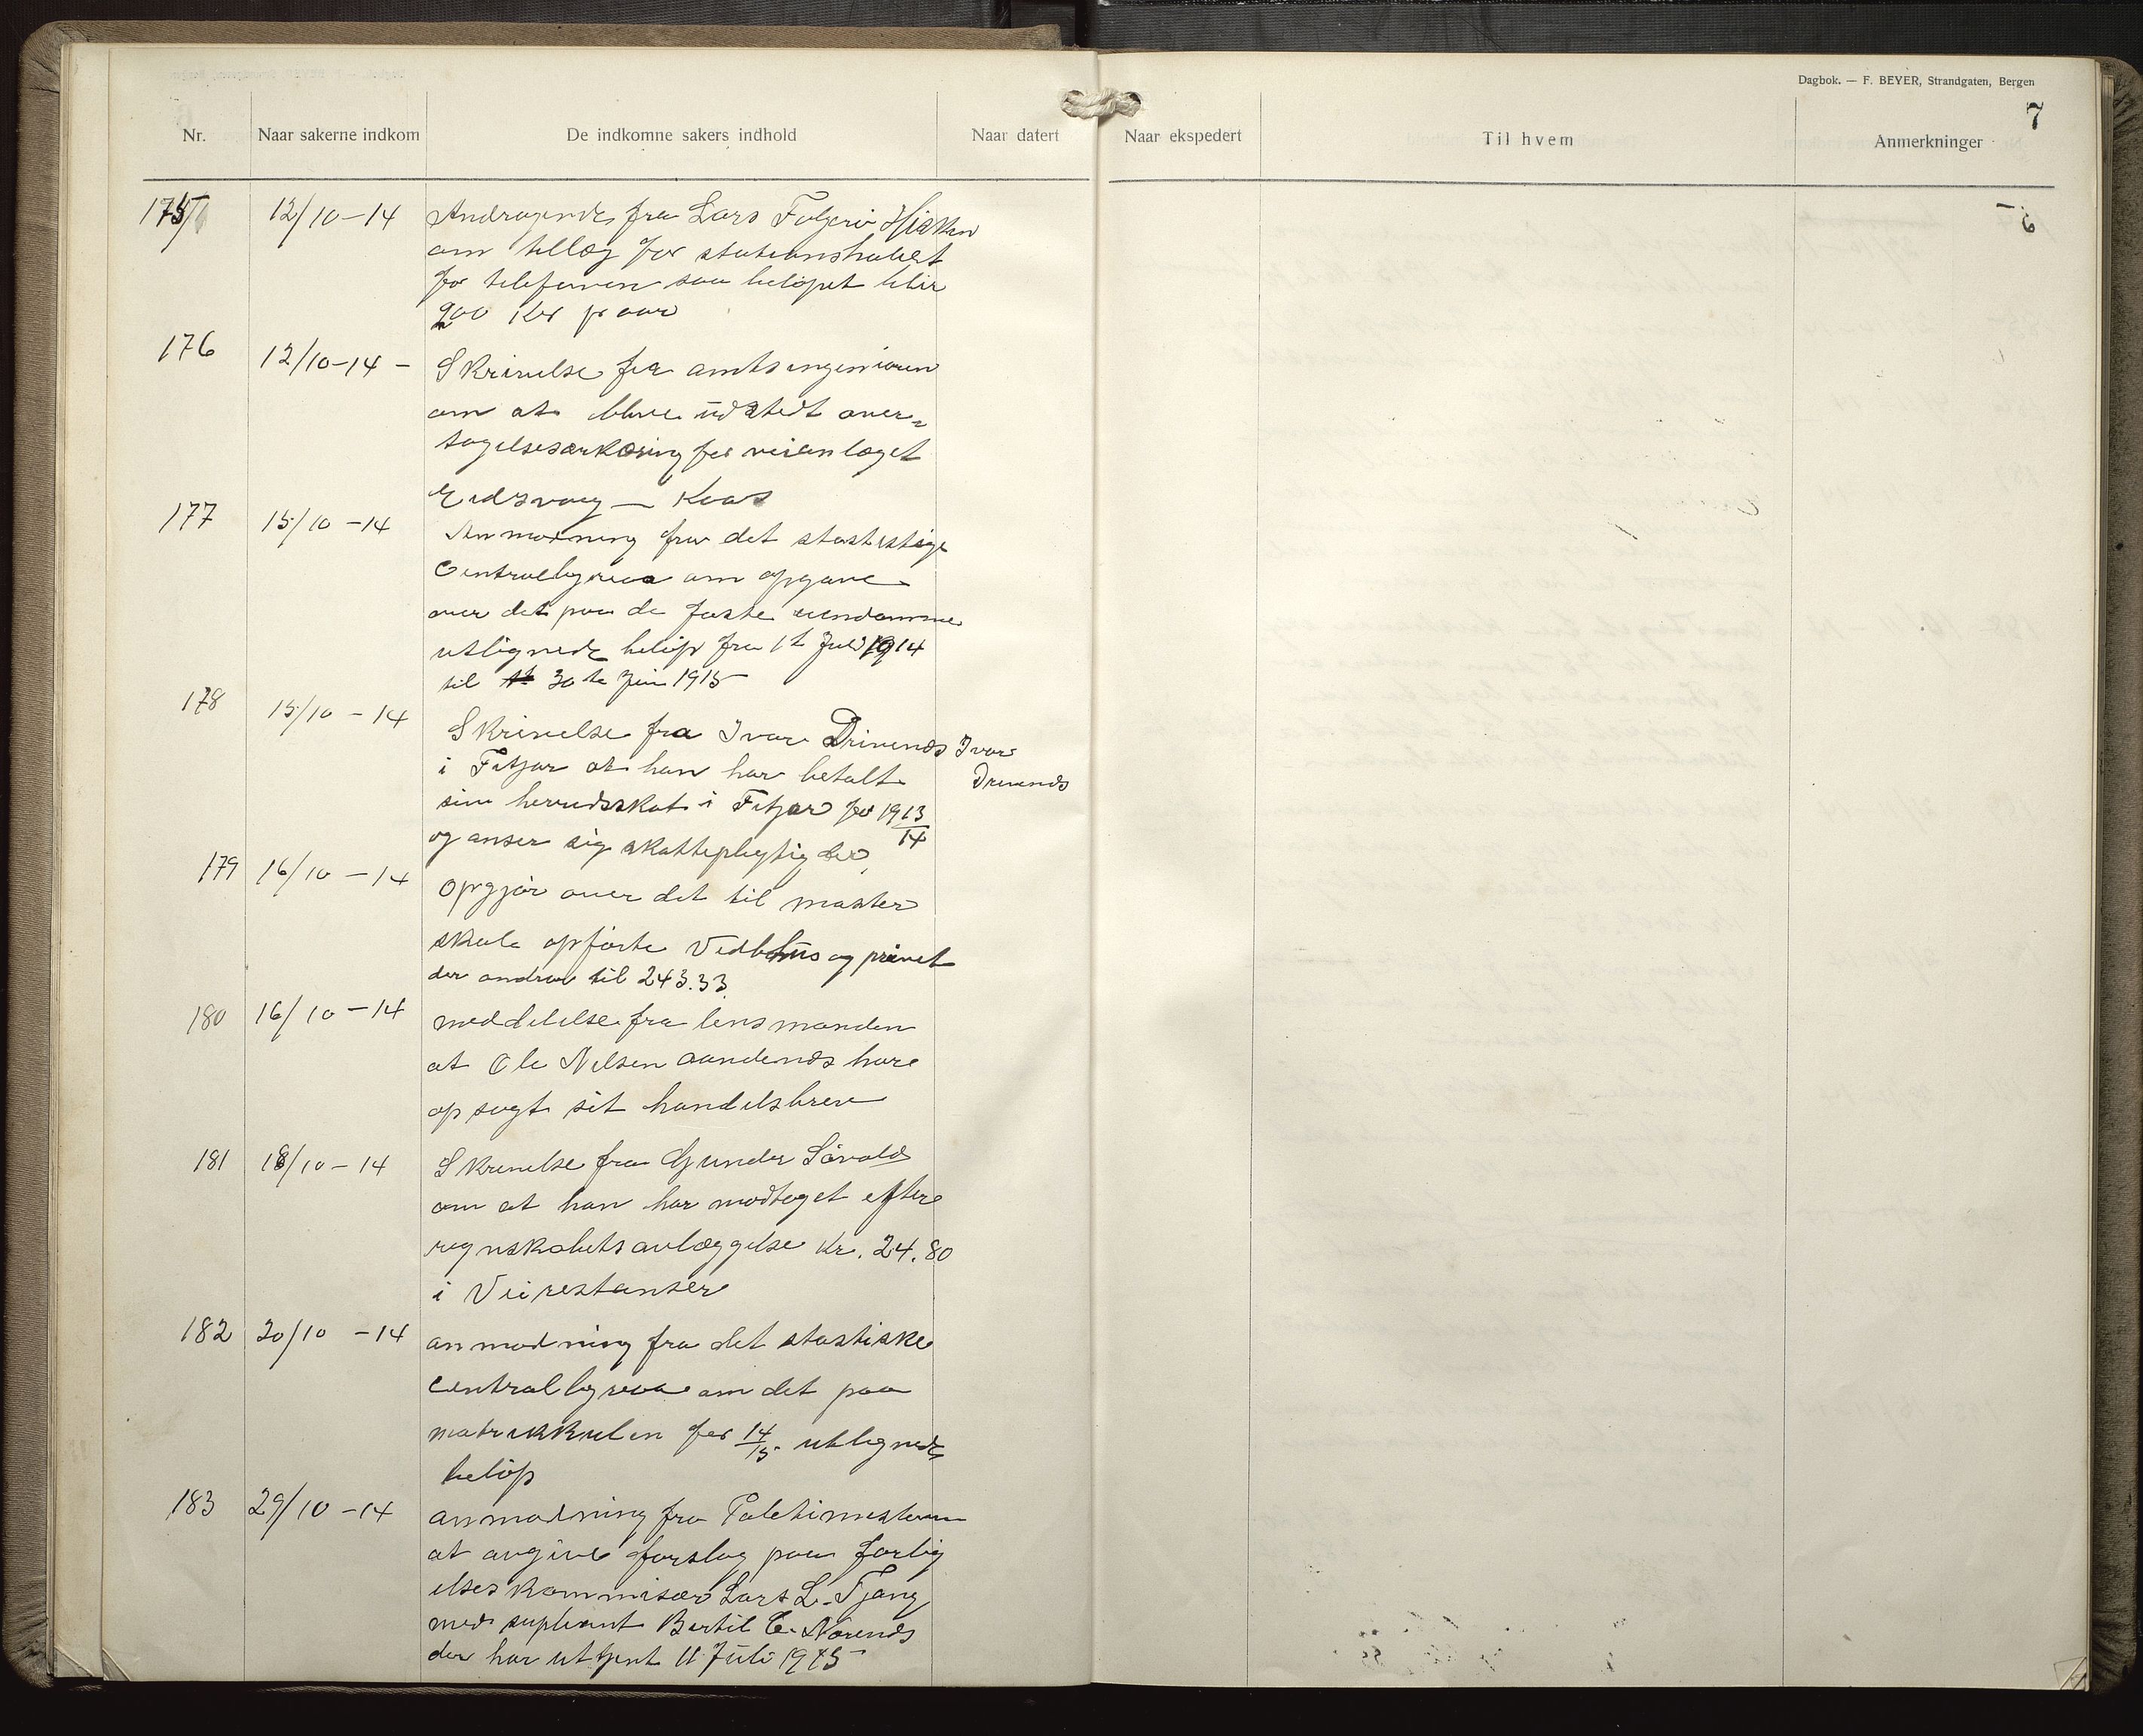 Dagbok. — F. BEYER, Strandgaten, Bergen
7
Nr. Naar sakerne indkom De indkomne sakers indhold Naar datert Naar ekspedert Til hvem Anmerkninger
175 12/10-14 Andragende fra Lars Folgerö
om tillæg for stationsholdet
for telefonen saa belöpet blir
200 Kr pr aar
176 12/10-14 - Skrivelse fra amtsingeniören
om at blive udstedt over-
tagelseserkæring for veianlæget
Eidsvaag — Koas
177 15/10-14 Anmodning fra det stastistige
Centralbyraa om opgave
over det paa de faste eiendomme
utlignede belöp fra 1t Juli 1914
til 30te Juni 1915
178 15/10-14 Skrivelse fra Ivar Drivenes Ivar
i Fitjar at han har betalt Drivenes
sin herredsskat i Fitjar for 1913/14
og anser sig skattepligtig der
179 16/10-14 Opgjör over det til Mæster
skole opförte Vedhus og privet
der andrar til 243.33
180 16/10-14 meddelelse fra lensmanden
at Ole Nilsen Aandenes have
opsagt sit handelsbrev
181 18/10-14 Skrivelse fra Gunder Sövold
om at han har modtaget efter
regnskabetsavlæggelse kr. 24.80
i Veirestanser
182 20/10-14 anmodning fra det stastiske
centralbyraa om det paa
matrikkulen for 14/15 utlignede
belöp
183 29/10-14 anmodning fra Poletimesteren
at avgive forslag paa forlig
elses kommisær Lars L. Tjong
med supleant Bertil E. Nörenes
der har uttjent 11 Juli 1915